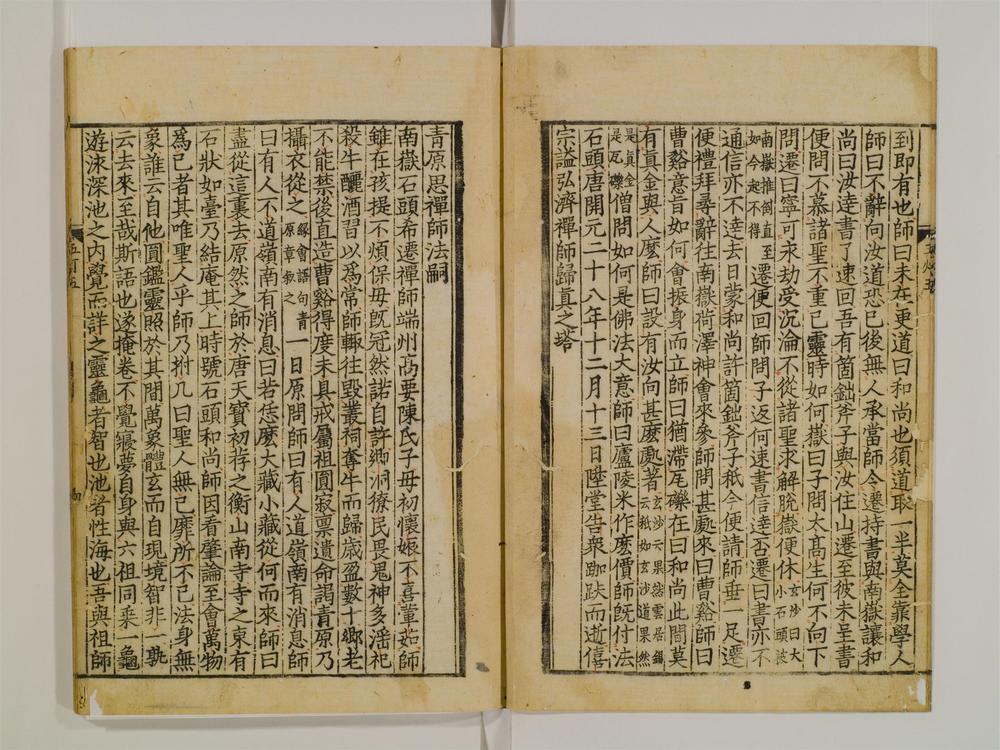 到即有也師曰未在更道曰和尚也須道取一半莫全靠學人
師曰不辭向汝道恐已後無人承當師令遷持書與南嶽讓和
尚曰汝達書了速回吾有箇鈯斧子與汝住山遷至彼未呈書
便問不慕諸聖不重己靈時如何嶽曰子問太高生何不向下
問遷曰寧可永劫受沉淪不從諸聖求解脫嶽便休玄沙曰大小石頭被
南嶽推倒直至如今起不得遷便回師問子返何速書信達否遷曰書亦不
通信亦不達去日蒙和尚許箇鈯斧子秖今便請師垂一足遷
便禮拜尋辭往南嶽荷澤神會來參師問甚處來曰曹谿師曰
曹谿意旨如何會振身而立師曰猶滯瓦礫在曰和尚此間莫
有真金與人麼師曰設有汝向甚麼處著玄沙云果然雲居錫云秖如玄沙道果然
是真金是瓦礫僧問如何是佛法大意師曰廬陵米作麼價師既付法
石頭唐開元二十八年十二月十三日陞堂告衆跏趺而逝僖
宗諡弘濟禪師歸真之塔
青原思禪師法嗣
南嶽石頭希遷禪師端州高要陳氏子母初懷娠不喜葷茹師
雖在孩提不煩保母既冠然諾自許鄉洞獠民畏鬼神多淫祀
殺牛釃酒習以爲常師輒往毀叢祠奪牛而歸歲盈數十鄉老
不能禁後直造曹谿得度未具戒屬祖圓寂稟遺命謁青原乃
攝衣從之緣會語句青原章敘之一日原問師曰有人道嶺南有消息師
曰有人不道嶺南有消息曰若恁麼大藏小藏從何而來師曰
盡從這裏去原然之師於唐天寶初荐之衡山南寺寺之東有
石狀如臺乃結庵其上時號石頭和尚師因看肇論至會萬物
爲己者其唯聖人乎師乃拊几曰聖人無己靡所不己法身無
象誰云自他圓鑑靈照於其間萬象體玄而自現境智非一孰
云去來至哉斯語也遂掩卷不覺寢夢自身與六祖同乘一龜
遊泳深池之內覺而詳之靈龜者智也池者性海也吾與祖師